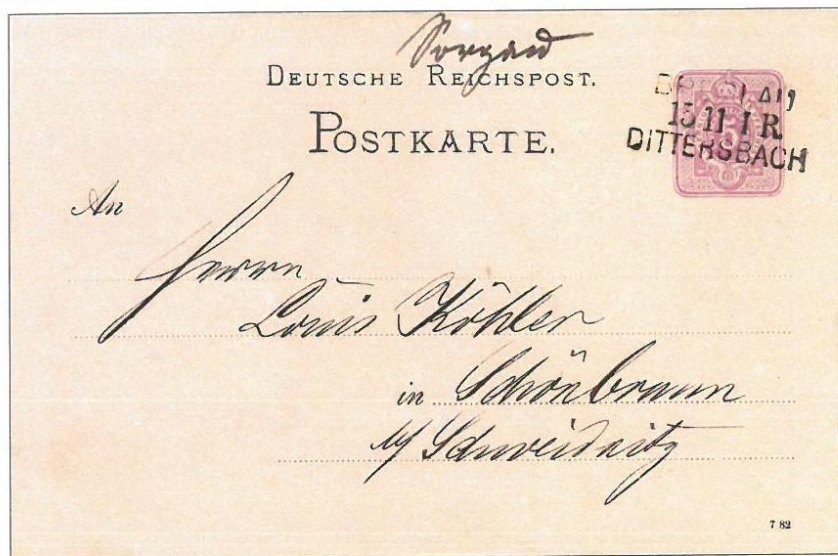 Sorgau
DEUTSCHE REICHSPOST.
POSTKARTE.
BRESLAU
15 11 I R
DITTERSBACH
An
Herrn
Louis Köhler
in Schönbrunn
b/ Schweidnitz
7 82